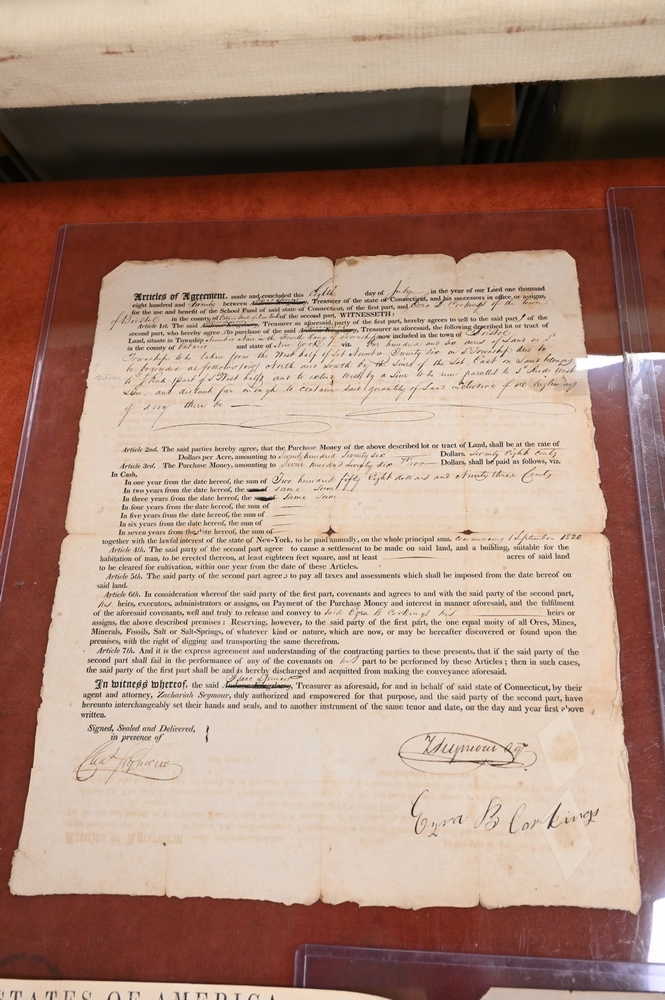 Articles of Agreement, made and concluded this Eighth day of July in the year of our Lord one thousand
eight hundred and Twenty between Andrew Kingsbury, Treasurer of the state of Connecticut, and his successors in office, or assigns,
for the use and benefit of the School Fund of said state of Connecticut, of the first part, and Ezra B Corkings of the town
of Bristol in the county of of the second part, WITNESSETH:
Article 1st. The said Andrew Kingsbury, Treasurer as aforesaid, party of the first part, hereby agrees to sell to the said part of the
second part, who hereby agree to purchase of the said Andrew Kingsbury, Treasurer as aforesaid, the following described lot or tract of
Land, situate in Township Number in the Range of Townships now included in the town of Bristol
in the county of Ontario and state of New York viz. One hundred and six acres of Land in Sd
Township to be taken from the West half of Lot Number Twenty six in Sd Township and to
be bounded as follows North and South by the Lines of the Lot East on Land belonging
to part of Sd West half and to extend West by a Line to be run parallel to
Line and distant far enough to contain said quantity of Land inclusive of
if any there be
Article 2nd. The said parties hereby agree, that the Purchase Money of the above described lot or tract of Land, shall be at the rate of
Dollars per Acre, amounting to Seven hundred Seventy six Dollars Seventy Eight Cents
Article 3rd. The Purchase Money, amounting to Seven hundred Seventy six 78/100 Dollars, shall be paid as follows, viz.
In Cash,
In one year from the date hereof, the sum of Two hundred fifty Eight dollars and Ninety three Cents
In two years from the date hereof, the sum of same Sum
In three years from the date hereof, the sum of same sum
In four years from the date hereof, the sum of
In five years from the date hereof, the sum of
In six years from the date hereof, the sum of
In seven years from the date hereof, the sum of
together with the lawful interest of the state of New-York, to be paid annually, on the whole principal sum. Commencing 1 September 1820
Article 4th. The said party of the second part agree to cause a settlement to be made on said land, and a building, suitable for the
habitation of man, to be erected thereon, at least eighteen feet square, and at least acres of said land
to be cleared for cultivation, within one year from the date of these Articles.
Article 5th. The said party of the second part agrees to pay all taxes and assessments which shall be imposed from the date hereof on
said land.
Article 6th. In consideration whereof the said party of the first part, covenants and agrees to and with the said party of the second part,
his heirs, executors, administrators or assigns, on Payment of the Purchase Money and interest in manner aforesaid, and the fulfilment
of the aforesaid covenants, well and truly to release and convey to said Ezra B Corkings his heirs or
assigns, the above described premises: Reserving, however, to the said party of the first part, the one equal moity of all Ores, Mines,
Minerals, Fossils, Salt or Salt-Springs, of whatever kind or nature, which are now, or may be hereafter discovered or found upon the
premises, with the right of digging and transporting the same therefrom.
Article 7th. And it is the express agreement and understanding of the contracting parties to these presents, that if the said party of the
second part shall fail in the performance of any of the covenants on his part to be performed by these Articles; then in such cases,
the said party of the first part shall be and is hereby discharged and acquitted from making the conveyance aforesaid.
In witness whereof, the said Isaac Spencer Andrew Kingsbury, Treasurer as aforesaid, for and in behalf of said state of Connecticut, by their
agent and attorney, Zachariah Seymour, duly authorized and empowered for that purpose, and the said party of the second part, have
hereunto interchangeably set their hands and seals, and to another instrument of the same tenor and date, on the day and year first above
written.
Signed, Sealed and Delivered,
in presence of
Chas Seymour
Z Seymour Agt
Ezra B Corkings
STATES OF AMERICA